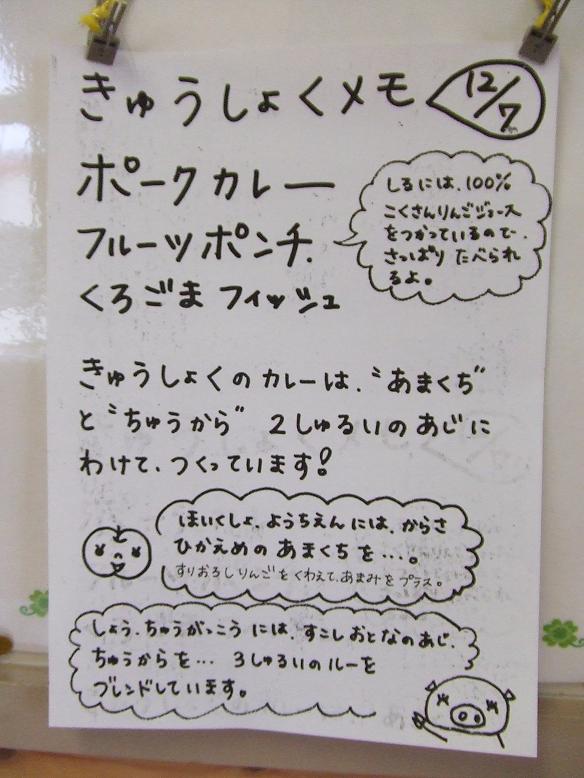 きゅうしょくメモ 12/7
ポークカレー
フルーツポンチ.
くろごま フィッシュ
しるには、100%
こくさんりんごジュース
をつかっているので、
さっぱり たべられ
るよ。
きゅうしょくのカレーは、"あまくち"
と"ちゅうから" 2しゅるいのあじに
わけて、つくっています!
ほいくしょ、ようちえんには、からさ
ひかえめのあまくちを…。
すりおろしりんごをくわえて、あまみをプラス。
しょう、ちゅうがっこうには、すこしおとなのあじ、
ちゅうからを… 3しゅるいのルーを
ブレンドしています。